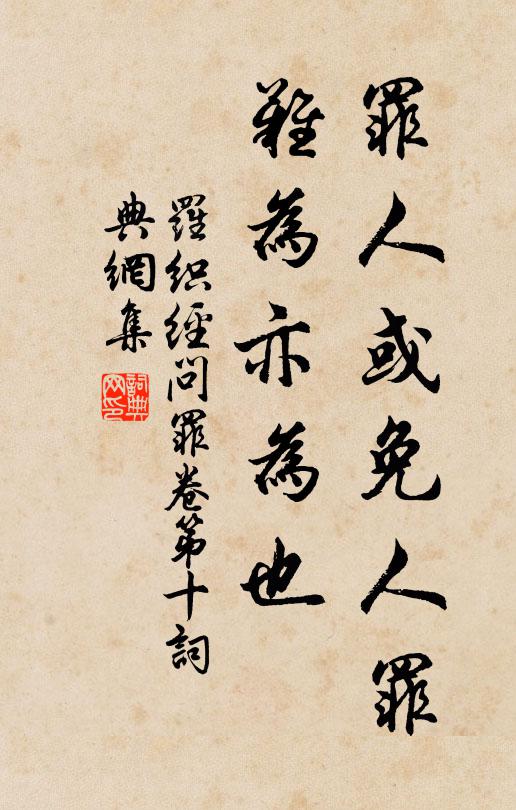 罪人或免人罪
難為亦為也
羅织經問罪卷第十詞
典網集
詞典
网印